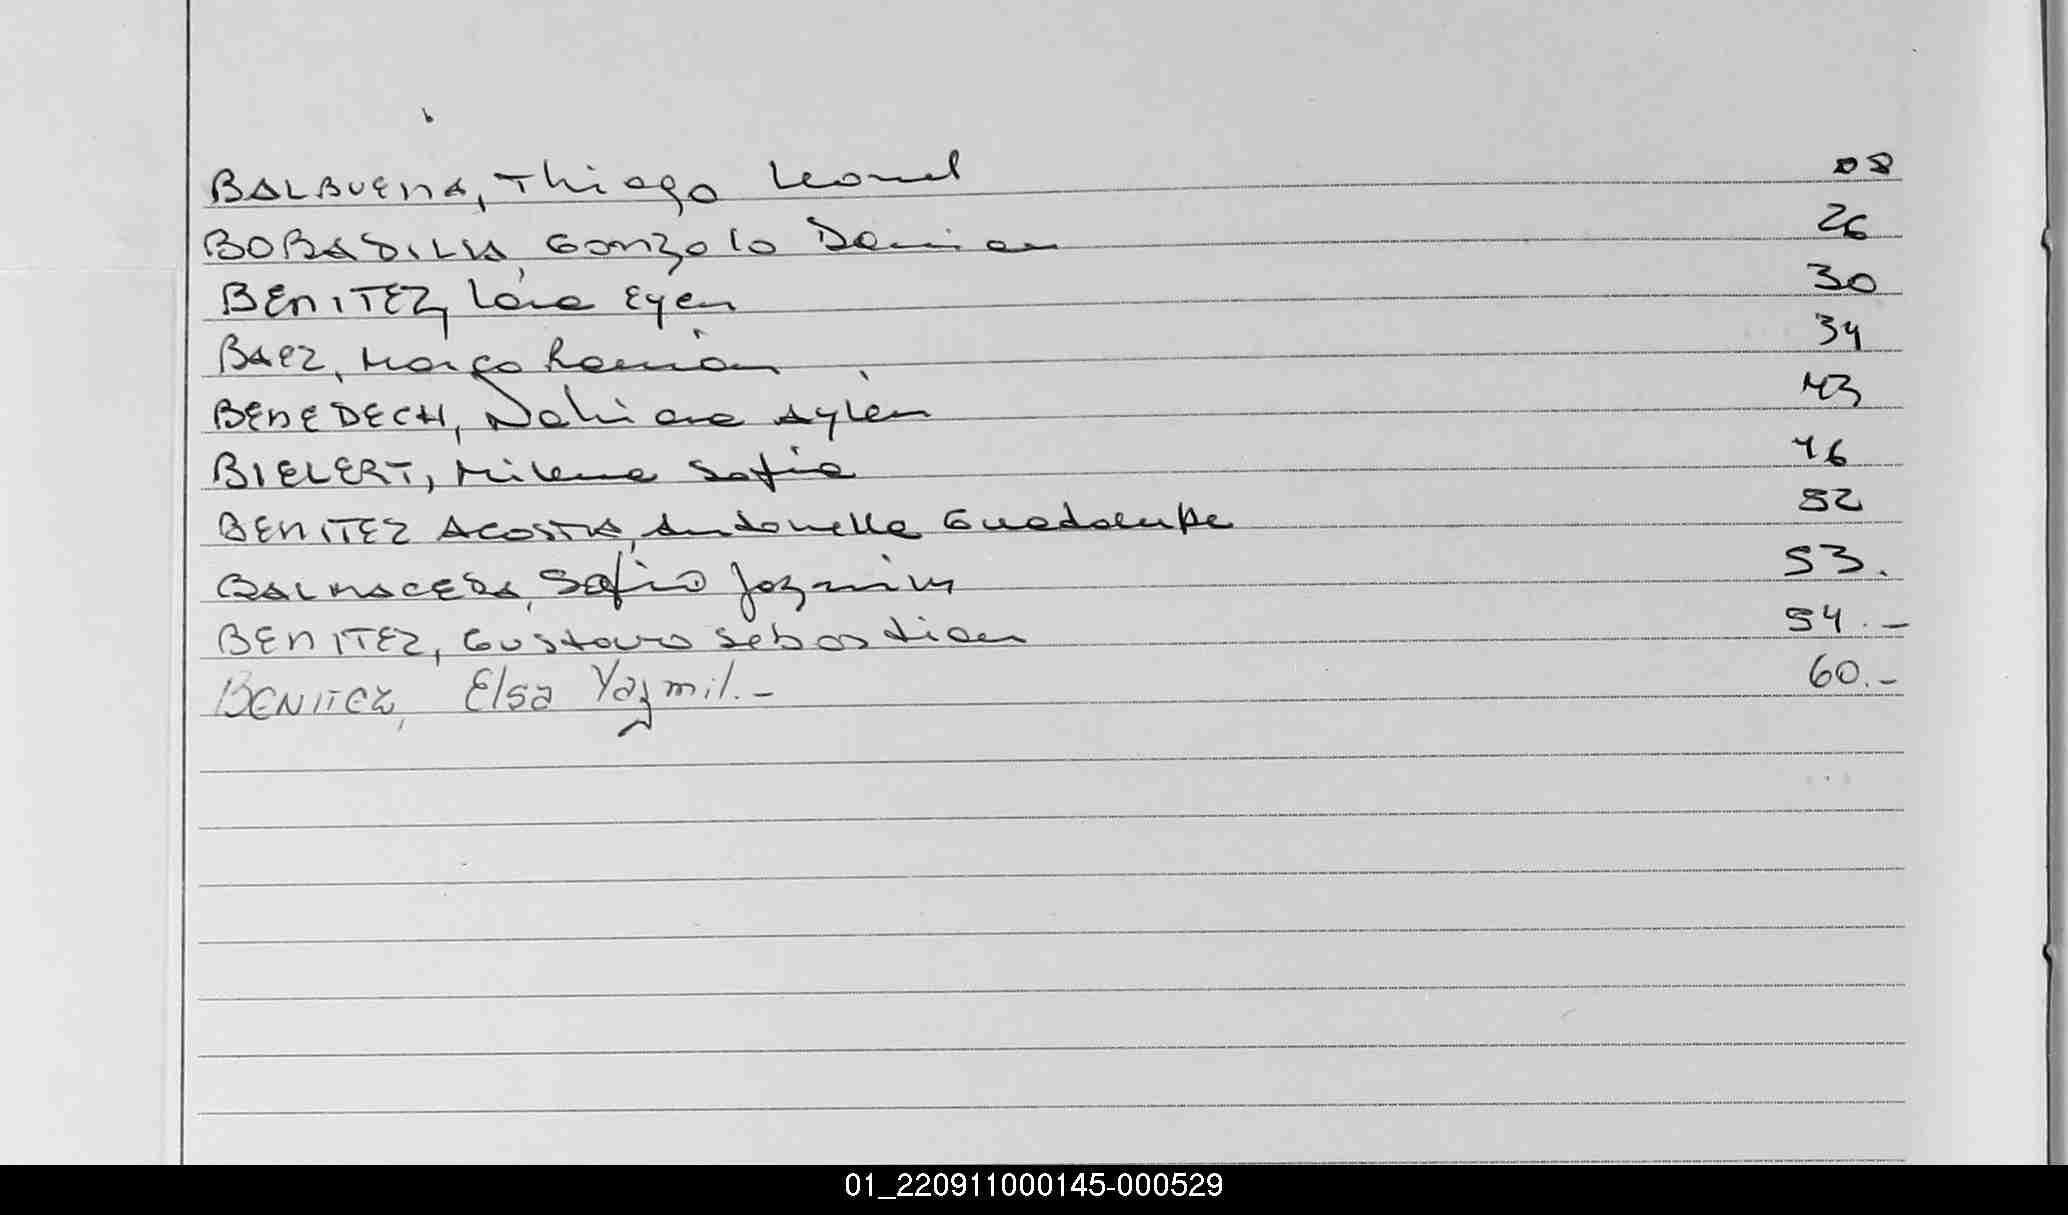 BALBUENA, Thiago Leonel 08
BOBADILLA, Gonzalo Damian 26
BENITEZ, Lara Eyen 30
BAEZ, Marco Román 34
BENEDECH, Nahiara Aylén 43
BIELERT, Milena Sofía 46
BENITEZ ACOSTA, Antonella Guadalupe 52
BALMACEDA, Sofia Jazmin 53.
BENITEZ, Gustavo Sebastian 54.-
BENITEZ, Elsa Yazmil.- 60.-
01_220911000145-000529